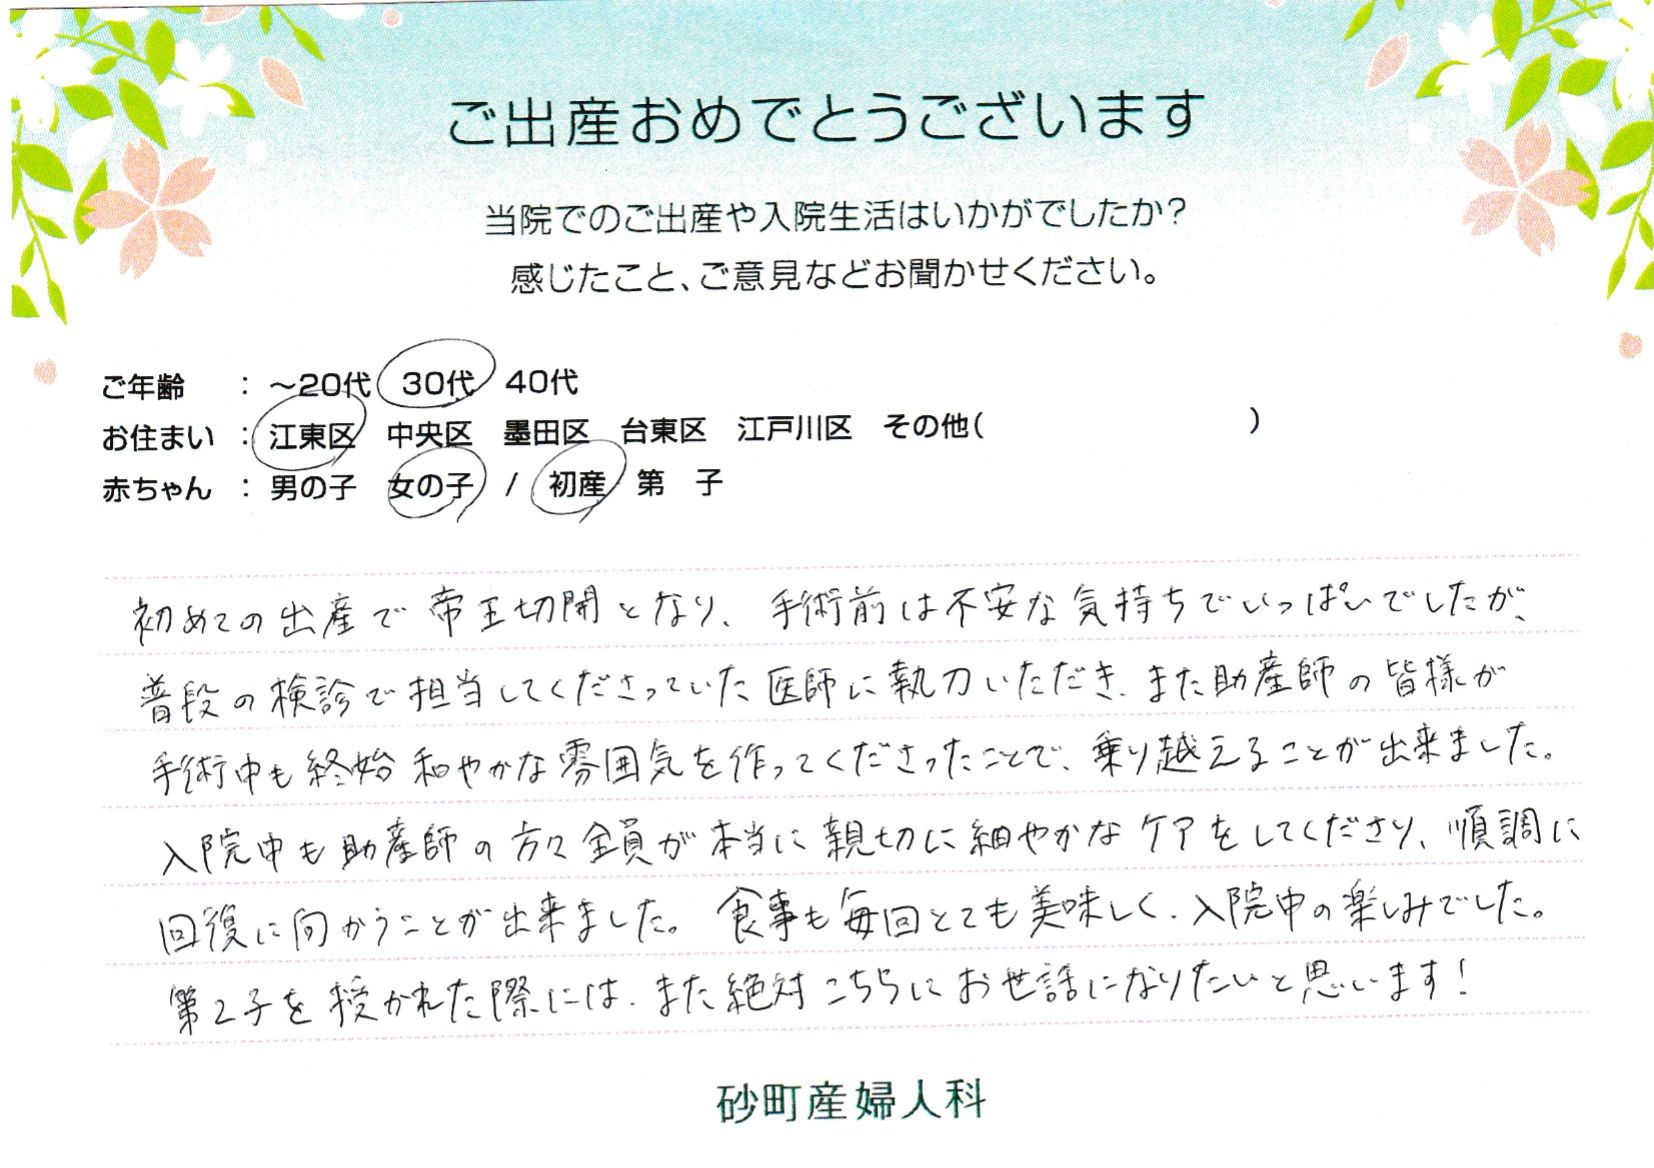 ご出産おめでとうございます
当院でのご出産や入院生活はいかがでしたか?
感じたこと、ご意見などお聞かせください。
ご年齢 : ~20代 30代 40代
お住まい : 江東区 中央区 墨田区 台東区 江戸川区 その他( )
赤ちゃん : 男の子 女の子 / 初産 第 子
初めての出産で帝王切開となり、手術前は不安な気持ちでいっぱいでしたが、
普段の検診で担当してくださっていた医師に執刀いただき、また助産師の皆様が
手術中も終始和やかな雰囲気を作ってくださったことで、乗り越えることが出来ました。
入院中も助産師の方々全員が本当に親切に細やかなケアをしてくださり、順調に
回復に向かうことが出来ました。食事も毎回とても美味しく、入院中の楽しみでした。
第2子を授かれた際には、また絶対こちらにお世話になりたいと思います!
砂町産婦人科